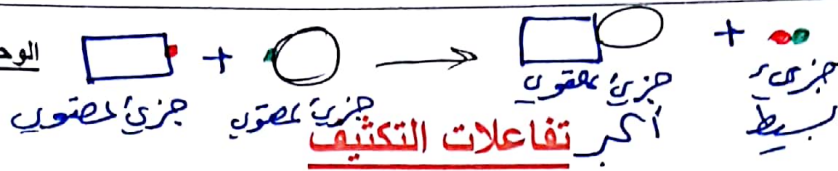 الوح
+ → +
جزيئ عضوي جزيئ عضوي جزيئ عضوي أكبر جزيء بسيط
تفاعلات التكثيف